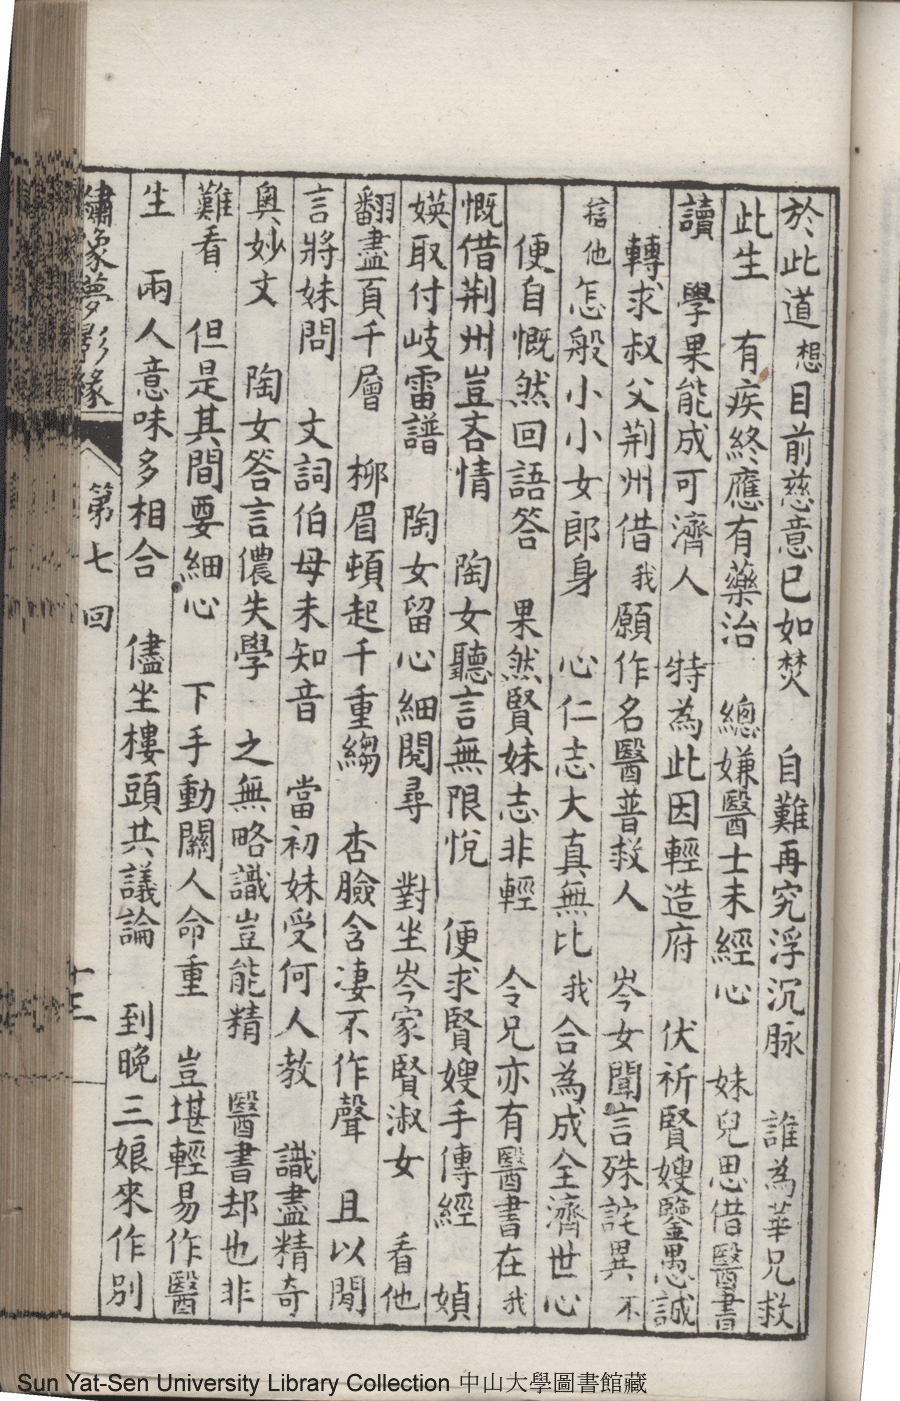 於此道想目前慈意已如焚　自難再究浮沉脉　誰為華兄救
此生　有疾終應有藥治　總嫌醫士未經心　妹兒思借醫書
讀　學果能成可濟人　特為此因輕造府　伏祈賢嫂鑒愚誠
轉求叔父荆州借我願作名醫普救人　岑女聞言殊詫異不
信他怎般小小女郎身　心仁志大真無比我合為成全濟世心
便自慨然回語答　果然賢妹志非輕　令兄亦有醫書在我
慨借荆州豈吝情　陶女聽言無限悅　便求賢嫂手傳經　媜
媖取付岐雷譜　陶女留心細閱尋　對坐岑家賢淑女　看他
翻盡頁千層　柳眉頓起千重縐　杏臉含凄不作聲　且以閒
言將妹問　文詞伯母未知音　當初妹受何人教　識盡精奇
奧妙文　陶女答言儂失學　之無略識豈能精　醫書却也非
難看　但是其間要細心　下手動關人命重　豈堪輕易作醫
生　兩人意味多相合　儘坐樓頭共議論　到晚三娘來作別
繡像夢影緣　第七回　十三
Sun Yat-Sen University Library Collection 中山大學圖書館藏